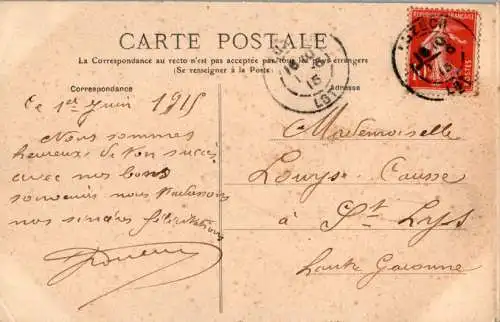 CARTE POSTALE
La Correspondance au recto n'est pas acceptée par tous les pays étrangers
(Se renseigner à la Poste)
Correspondance
Adresse
RÉPUBLIQUE FRANÇAISE
POSTES
LUZECH
LOT
Le 1er Juin 1915
Nous sommes
heureux de ton succès
avec nos bons
souvenirs nous t'adressons
nos sincères félicitations
Mademoiselle
Louyse Causse
à St Lys
Haute Garonne